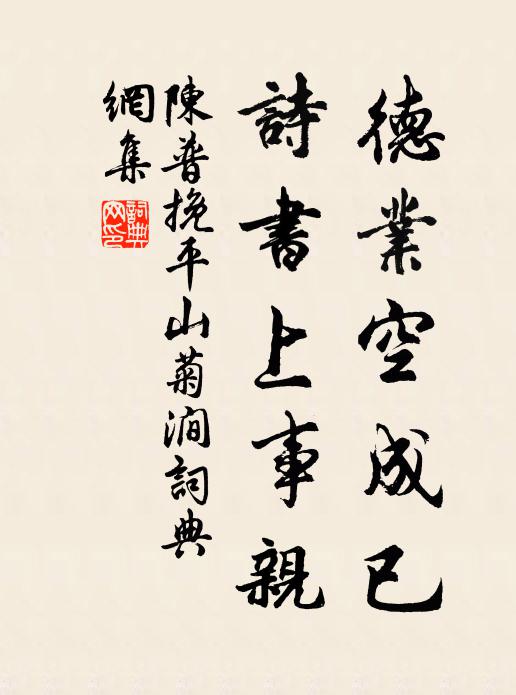 德業空成已
詩書上事親
陳普挽平山菊澗詞典
網集
詞典
網印